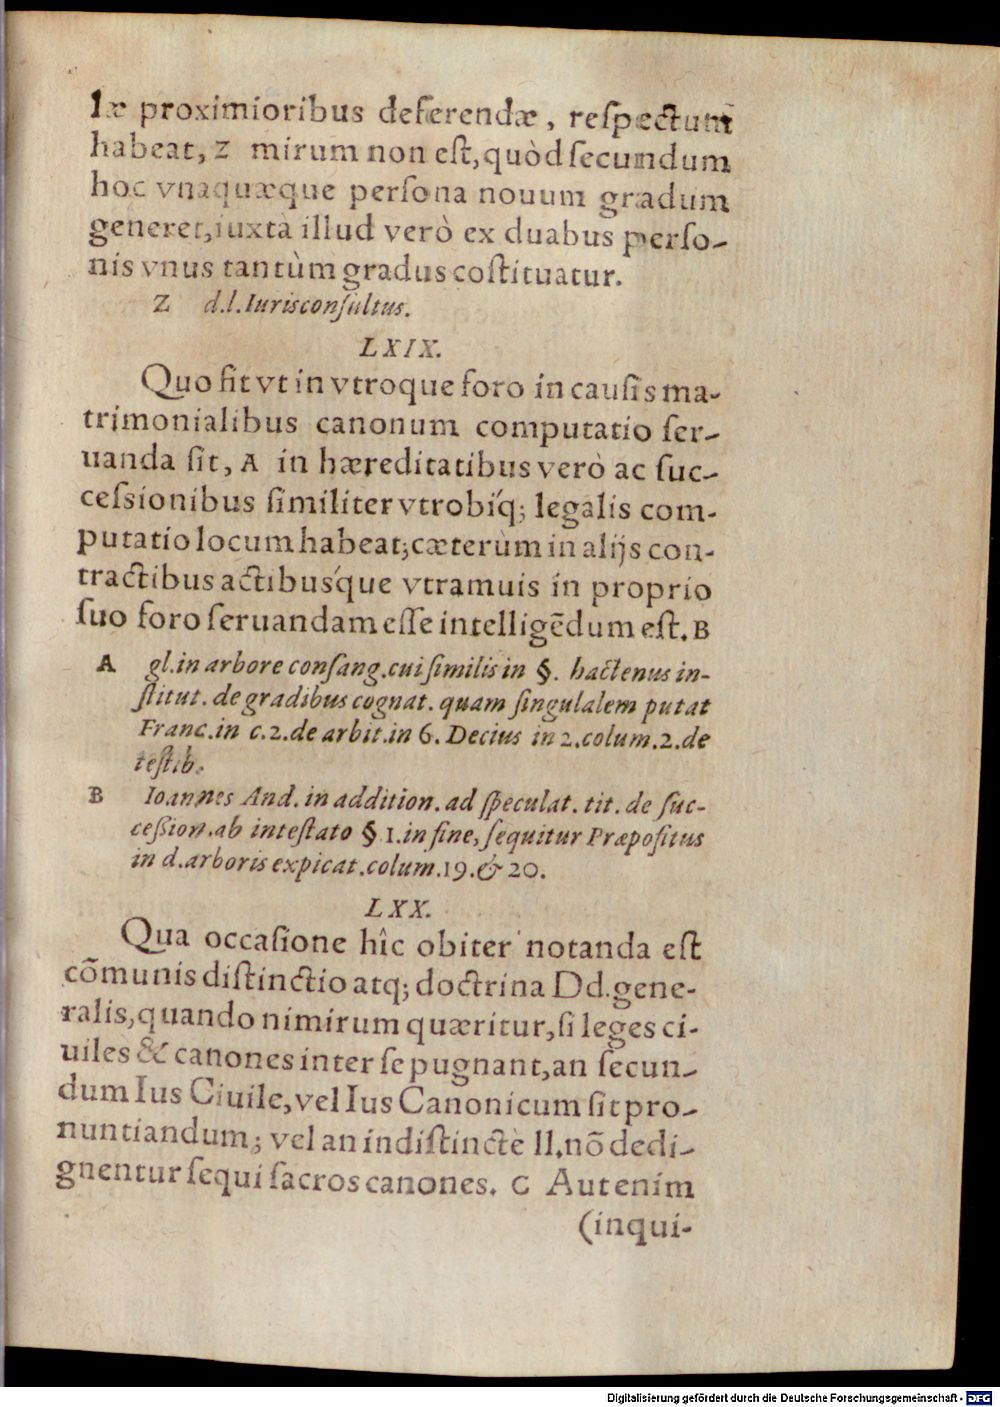 læ proximioribus deferendæ, reſpectum
habeat, Z mirum non eſt, quòd ſecundum
hoc vnaquæque perſona nouum gradum
generet, iuxtà illud verò ex duabus perſo-
nis vnus tantùm gradus coſtituatur.
Z d.l. Iurisconſultus.
LXIX.
Quo fit vt in vtroque foro in cauſis ma-
trimonialibus canonum computatio ſer-
uanda ſit, A in hæreditatibus verò ac ſuc-
ceſsionibus ſimiliter vtrobíq; legalis com-
putatio locum habeat; cæterùm in alijs con-
tractibus actibuśque vtramuis in proprio
ſuo foro ſeruandam eſſe intelligēdum eſt. B
A gl. in arbore conſang. cui ſimilis in §. hactenus in-
ſtitut. de gradibus cognat. quam ſingulalem putat
Franc. in c. 2. de arbit. in 6. Decius in 2. colum. 2. de
teſtib.
B Ioannes And. in addition. ad ſpeculat. tit. de ſuc-
ceßion. ab inteſtato § 1. in fine, ſequitur Præpoſitus
in d. arboris expicat. colum. 19. & 20.
LXX.
Qua occaſione hîc obiter notanda eſt
cõmunis diſtinctio atq; doctrina Dd. gene-
ralis, quando nimirum quæritur, ſi leges ci-
uiles & canones inter ſe pugnant, an ſecun-
dum Ius Ciuile, vel Ius Canonicum ſit pro-
nuntiandum; vel an indiſtinctè ll. nõ dedi-
gnentur ſequi ſacros canones. C Aut enim
(inqui-
Digitalisierung gefördert durch die Deutsche Forschungsgemeinschaft - DFG